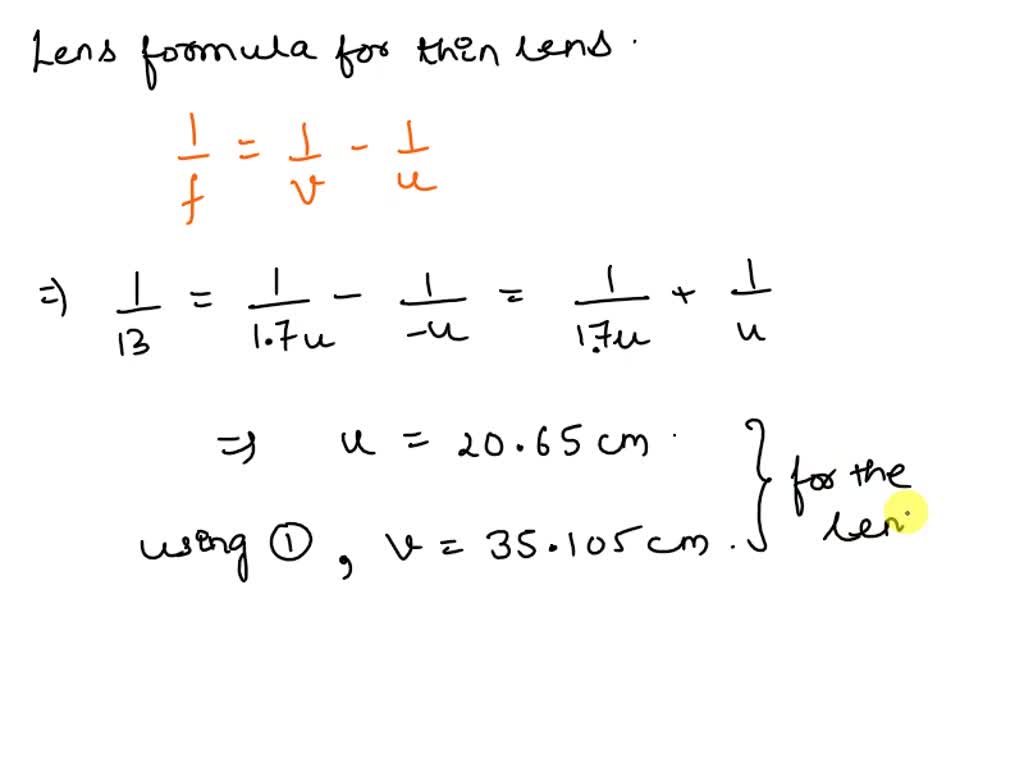 Lens formula for thin lens.
1/f = 1/v - 1/u
=) 1/13 = 1/1.7u - 1/-u = 1/1.7u + 1/u
=) u = 20.65 cm.
using ①, v = 35.105 cm. } for the
len